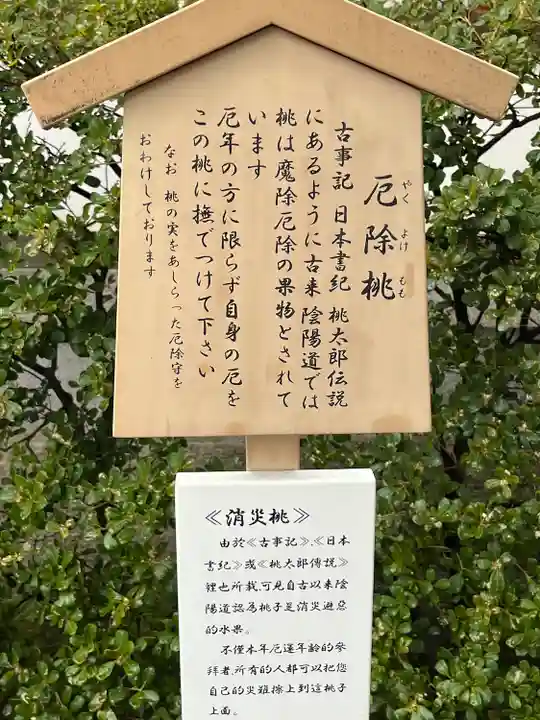 厄除桃
やく よけ もも
古事記 日本書紀 桃太郎伝説
にあるように古来 陰陽道では
桃は魔除厄除の果物とされて
います
厄年の方に限らず自身の厄を
この桃に撫でつけて下さい
なお 桃の実をあしらった厄除守を
おわけしております
≪消災桃≫
由於≪古事記≫、≪日本
書紀≫或≪桃太郎傳說≫
裡也所載,可見自古以来陰
陽道認為桃子是消災避惡
的水果。
不僅本年厄運年齡的參
拜者,所有的人都可以把您
自己的災難擦上到這桃子
上面。